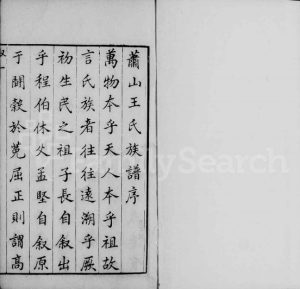 蕭山王氏族譜序
萬物本乎天人本乎祖故
言氏族者往往遠溯乎厥
初生民之祖子長自叙出
乎程伯休父孟堅自叙原
于鬪穀於菟屈正則謂高
FamilySearch